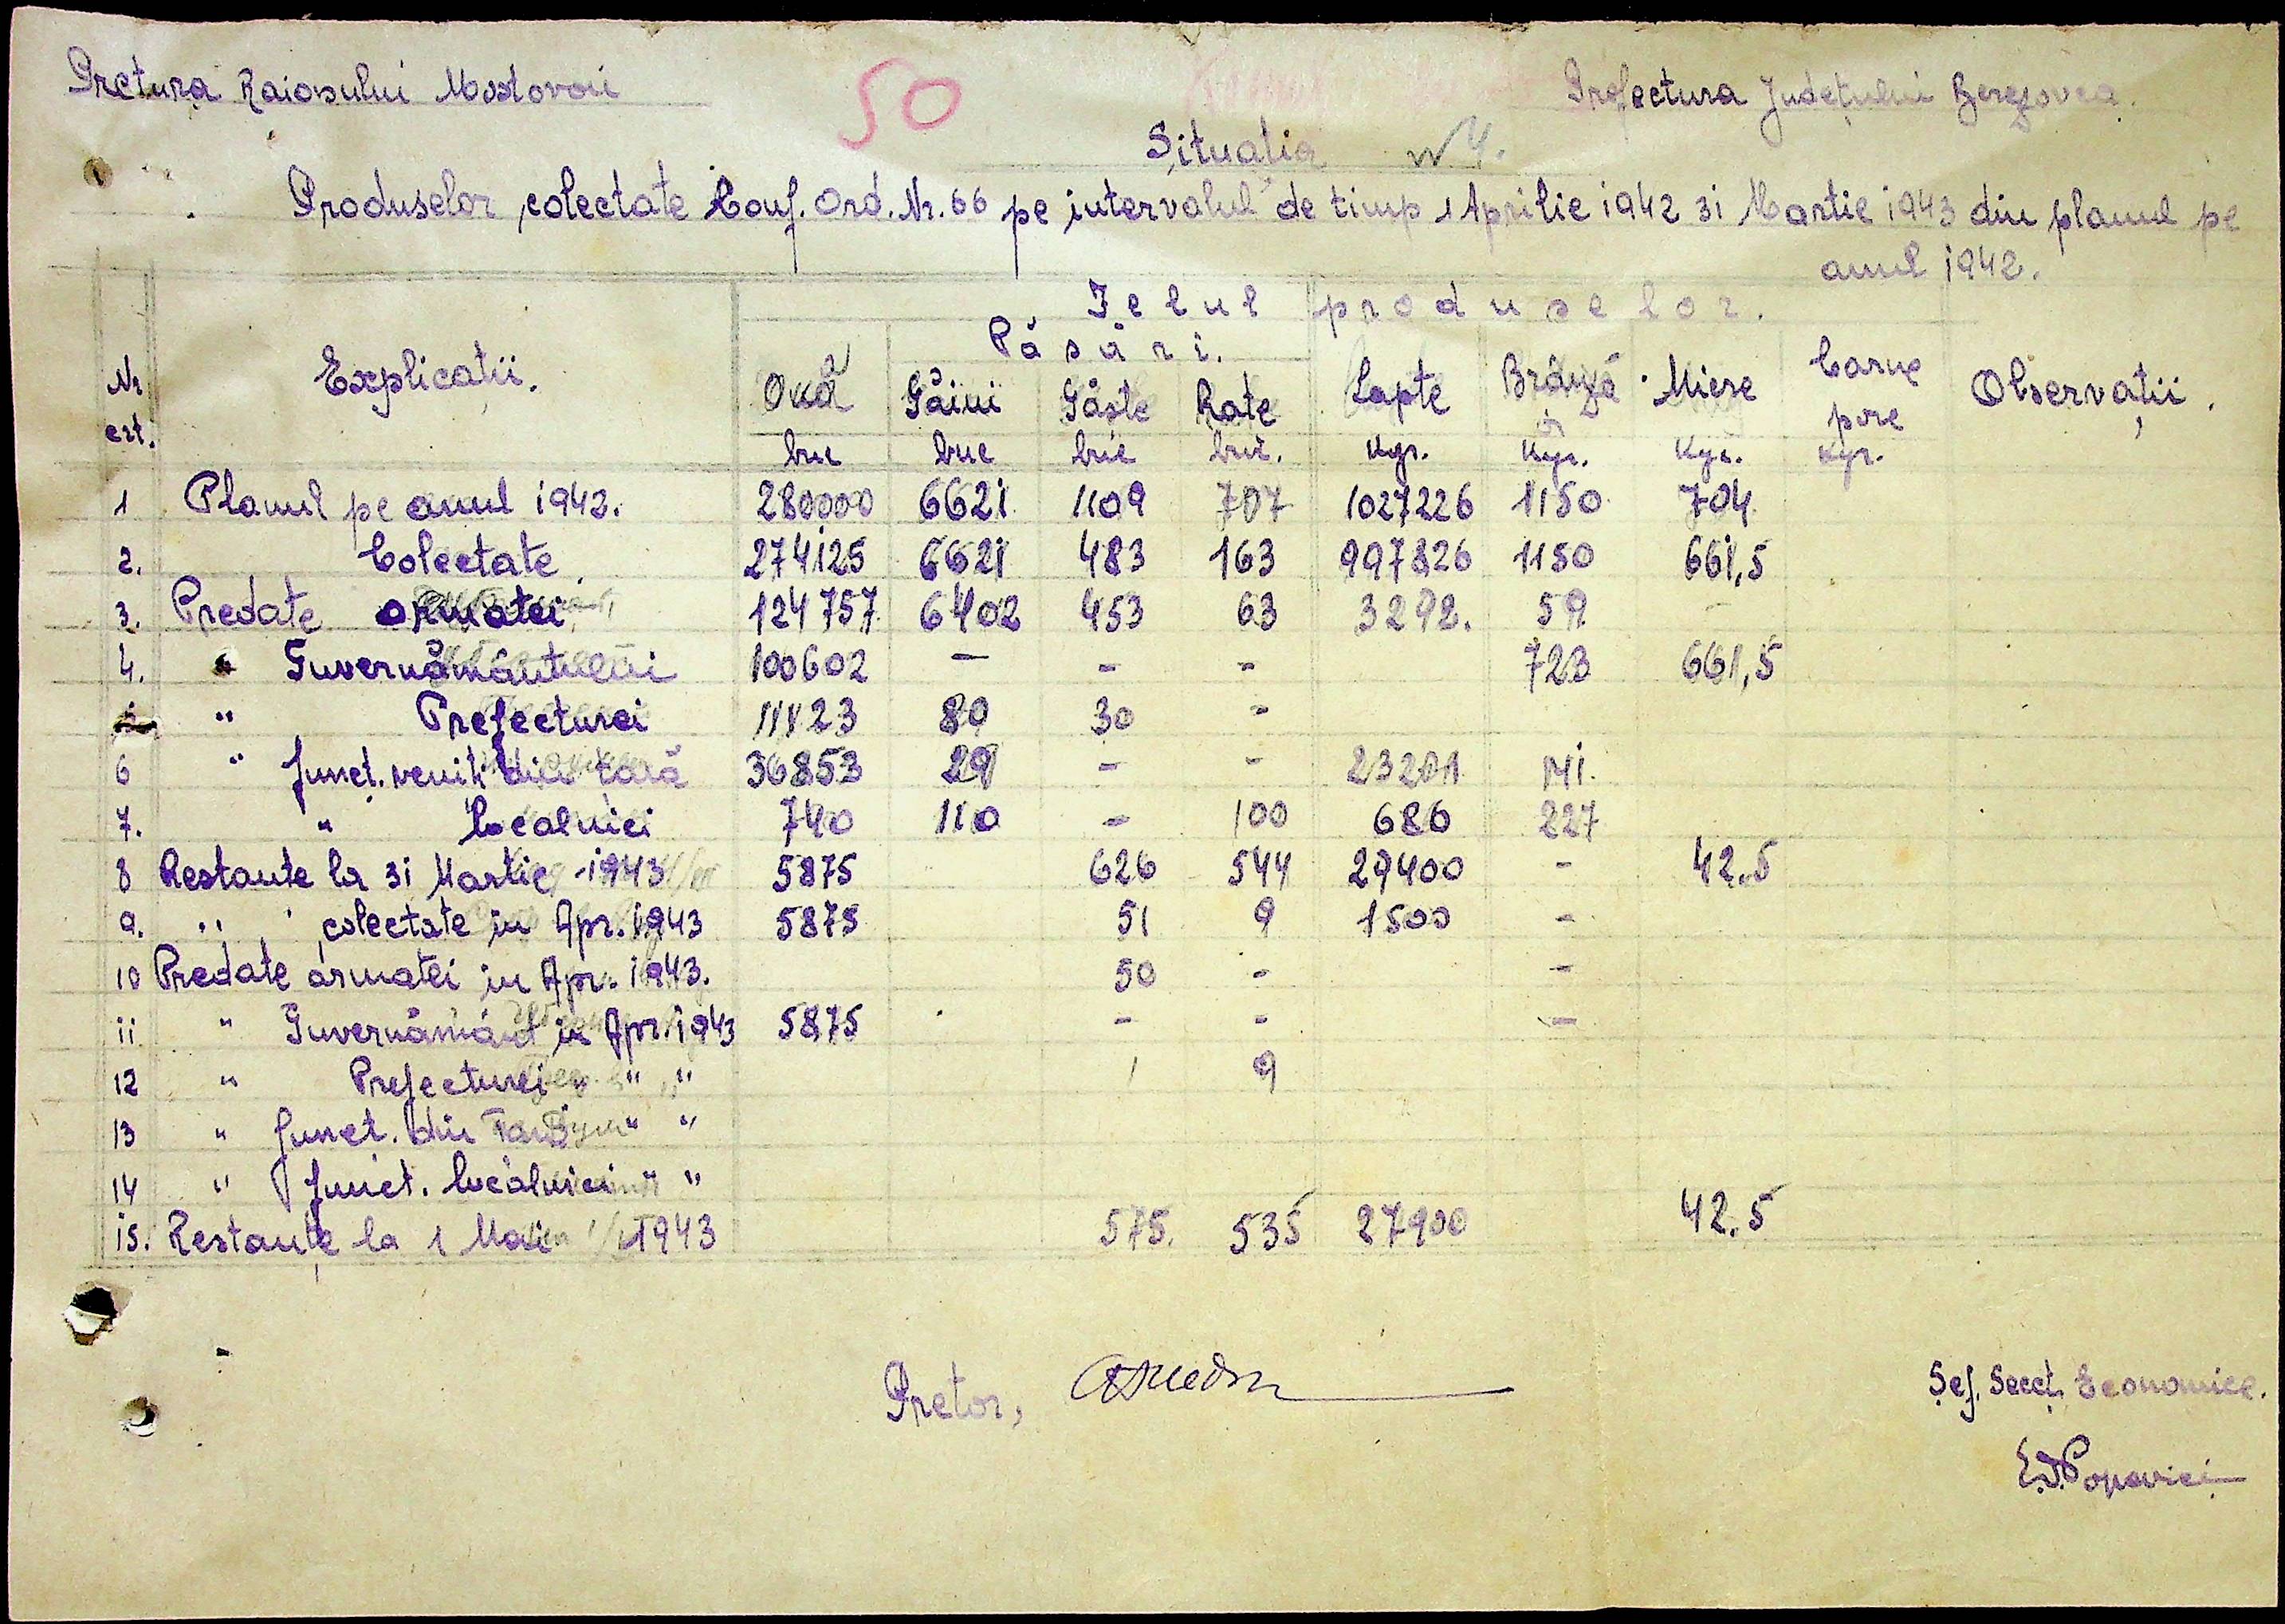 Pretura Raionului Mostovoii
50
Prefectura Județului Berezovca.
Situația
Produselor colectate Conf. Ord. Nr. 66 pe intervalul de timp 1 Aprilie 1942 31 Martie 1943 din planul pe
anul 1942.
Nr. crt. Explicatii. Felul produselor.
Păsări.
Ouă Găini Gâște Rate Lapte Brânză Miere Carne porc Observații.
buc buc buc buc. kgr. kgr. kgr. kgr.
1 Planul pe anul 1942. 280000 6621 1109 707 1027226 1150 704
2. Colectate 274125 6621 483 163 997826 1150 661,5
3. Predate armatei 124757 6402 453 63 3292. 59 -
4. " Guvernământului 100602 - - - 723 661,5
" Prefecturei 11123 80 30 -
6 " funct. veniti din țară 36853 29 - - 23201 141.
7. " Localnici 740 110 - 100 686 227
8 Restante la 31 Martie 1943 5875 626 544 29400 - 42.5
9. " colectate in Apr. 1943 5875 51 9 1500 -
10 Predate armatei in Apr. 1943. 50 - -
11 " Guvernământ in Apr. 1943 5875 - - -
12 " Prefecturei " " " 1 9
13 " funct. din " "
14 " funct. localnici " "
15. Restanțe la 1 Mai 1943 575. 535 27900 42.5
Pretor,
Șef. Secț. Economice.
E. D. Popovici